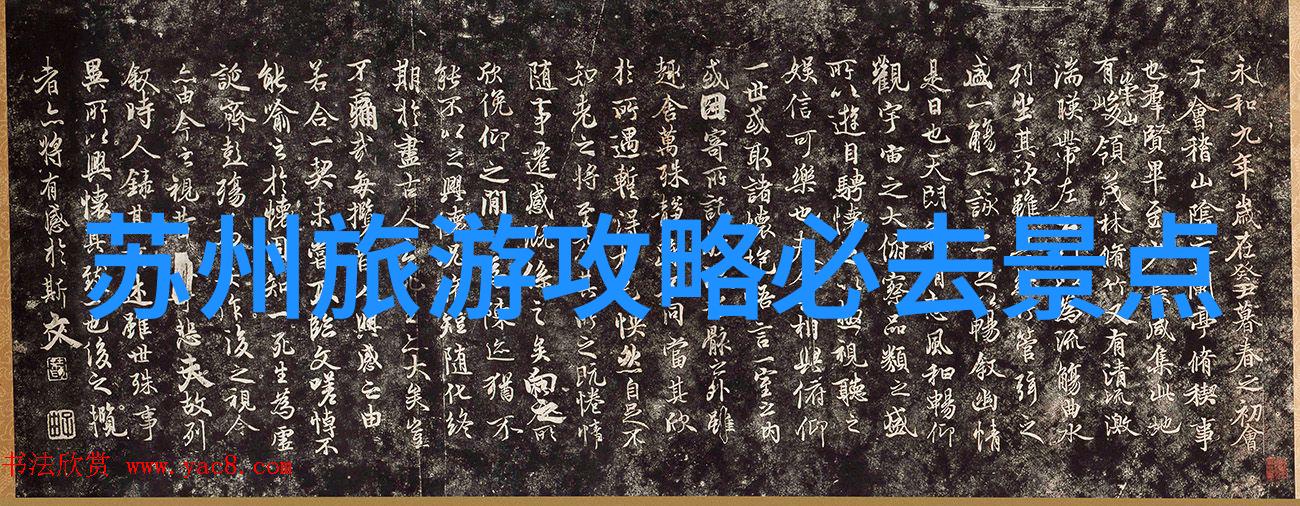 永和九年歲在癸丑暮春之初會
于會稽山陰之蘭亭脩稧事
也羣賢畢至咸集此地
有崇山峻領茂林脩竹又有清流激
湍暎帶左為流觴曲水
列坐其次雖管弦之
盛一觴一詠暢叙幽情
是日也天朗風和暢仰
觀宇宙之大俯察品類之盛
所以遊目騁懷視聽之
娛信可樂也相與俯仰
一世或取諸懷抱悟言一室之內
或因寄所託骸之外雖
趣舍萬殊靜同當其欣
於所遇暫得怏然自足不
知老之將至所之既惓情
隨事遷感慨係之矣向之所
欣俛仰之閒陳迹猶不
能不以之興懷短隨化終
期於盡古人大矣豈
不痛哉每攬昔人興感之由
若合一契未嘗不臨文嗟悼不
能喻之於懷固知一死生為虛
誕齊彭殤作後之視今
亦由今之視悲夫故列
叙時人錄其述雖世殊事
異所以興懷其致也後之攬
者亦將有感於斯文
苏州旅游攻略必去景点
书法欣赏 www.yac8.com